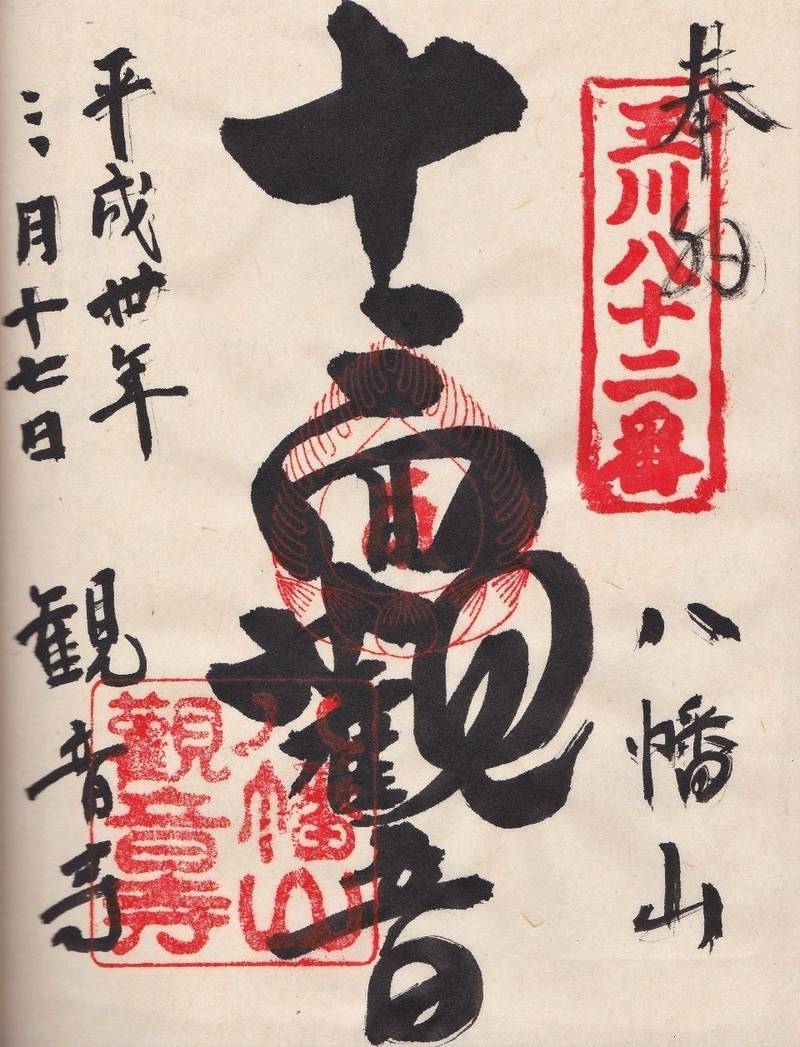 奉納
玉川八十二番
八幡山
十一面観音
八幡山
觀音寺
平成卅年
三月十七日
観音寺